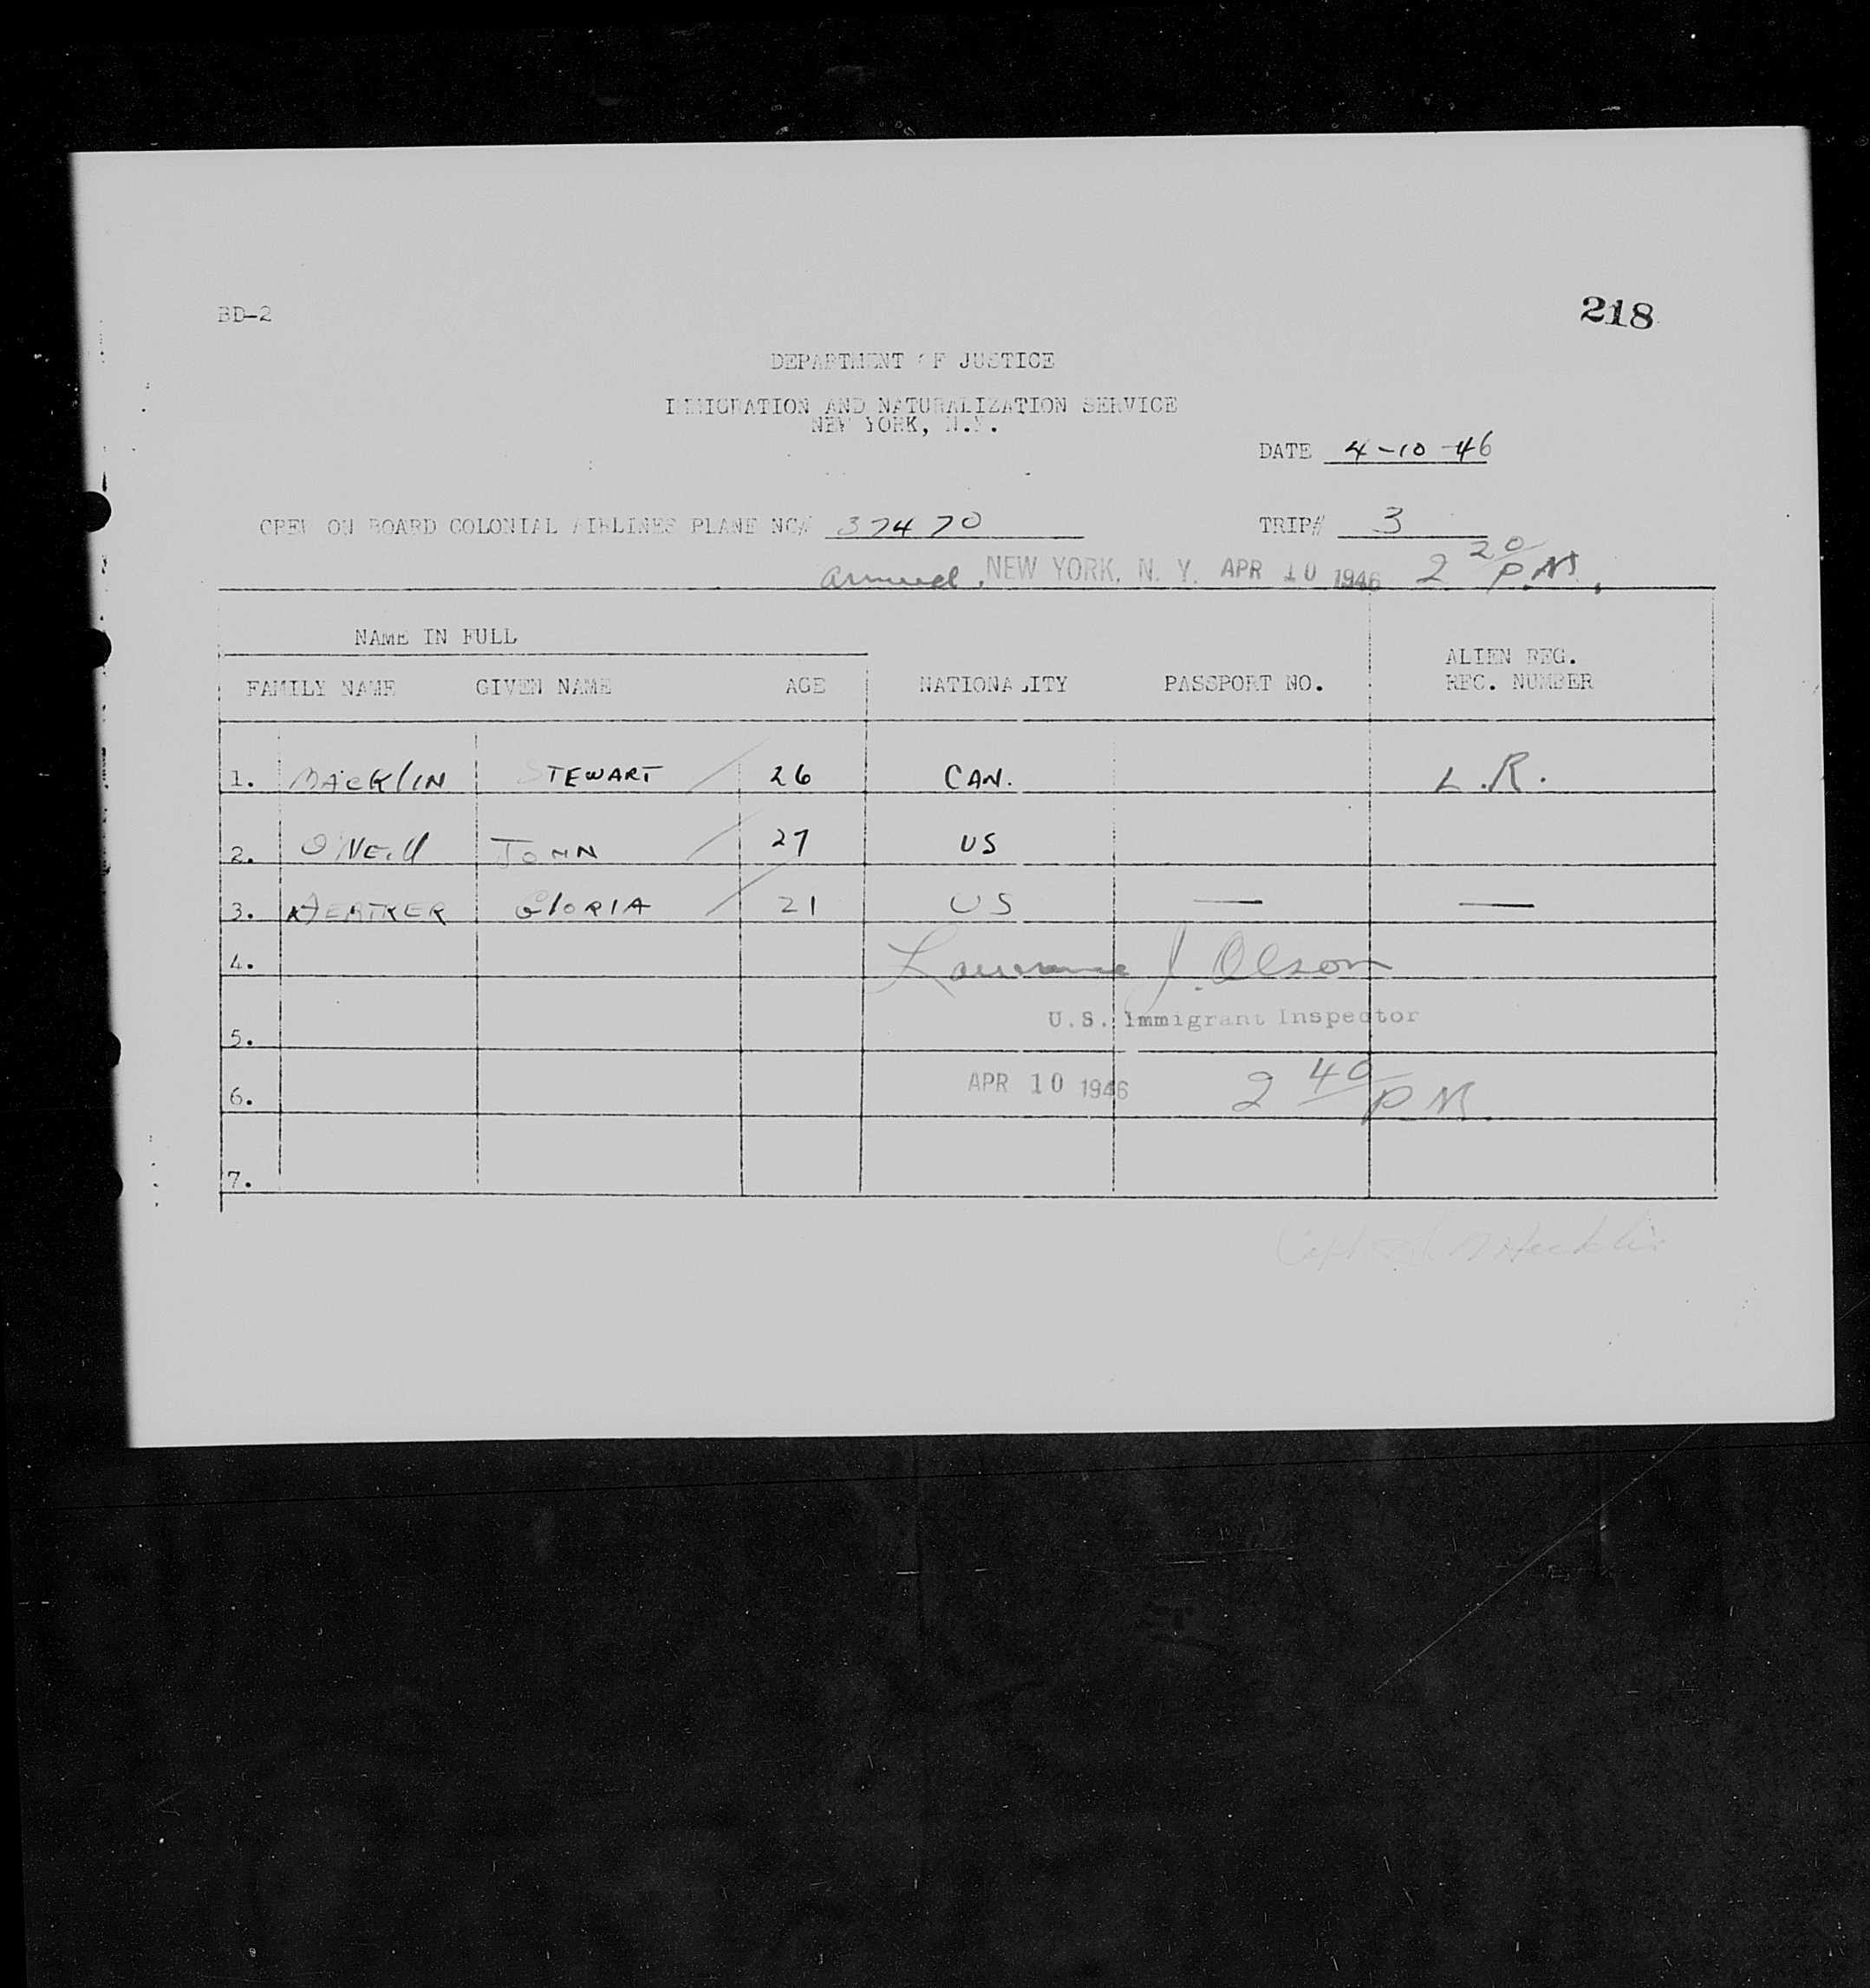 BD-2
218
DEPARTMENT OF JUSTICE
IMMIGRATION AND NATURALIZATION SERVICE
NEW YORK, N.Y.
DATE 4-10-46
CREW ON BOARD COLONIAL AIRLINES PLANE NC# 37470 TRIP# 3
arrived NEW YORK, N. Y. APR 10 1946 2 20 P.M.
NAME IN FULL
FAMILY NAME GIVEN NAME AGE NATIONALITY PASSPORT NO. ALIEN REG. REC. NUMBER
1. MACKLIN STEWART 26 CAN. L.R.
2. O'NEill JOHN 27 US
3. GlORIA 21 US — —
4. Lawrence J. Olson
U.S. Immigrant Inspector
5.
6. APR 10 1946 2 40 PM
7.